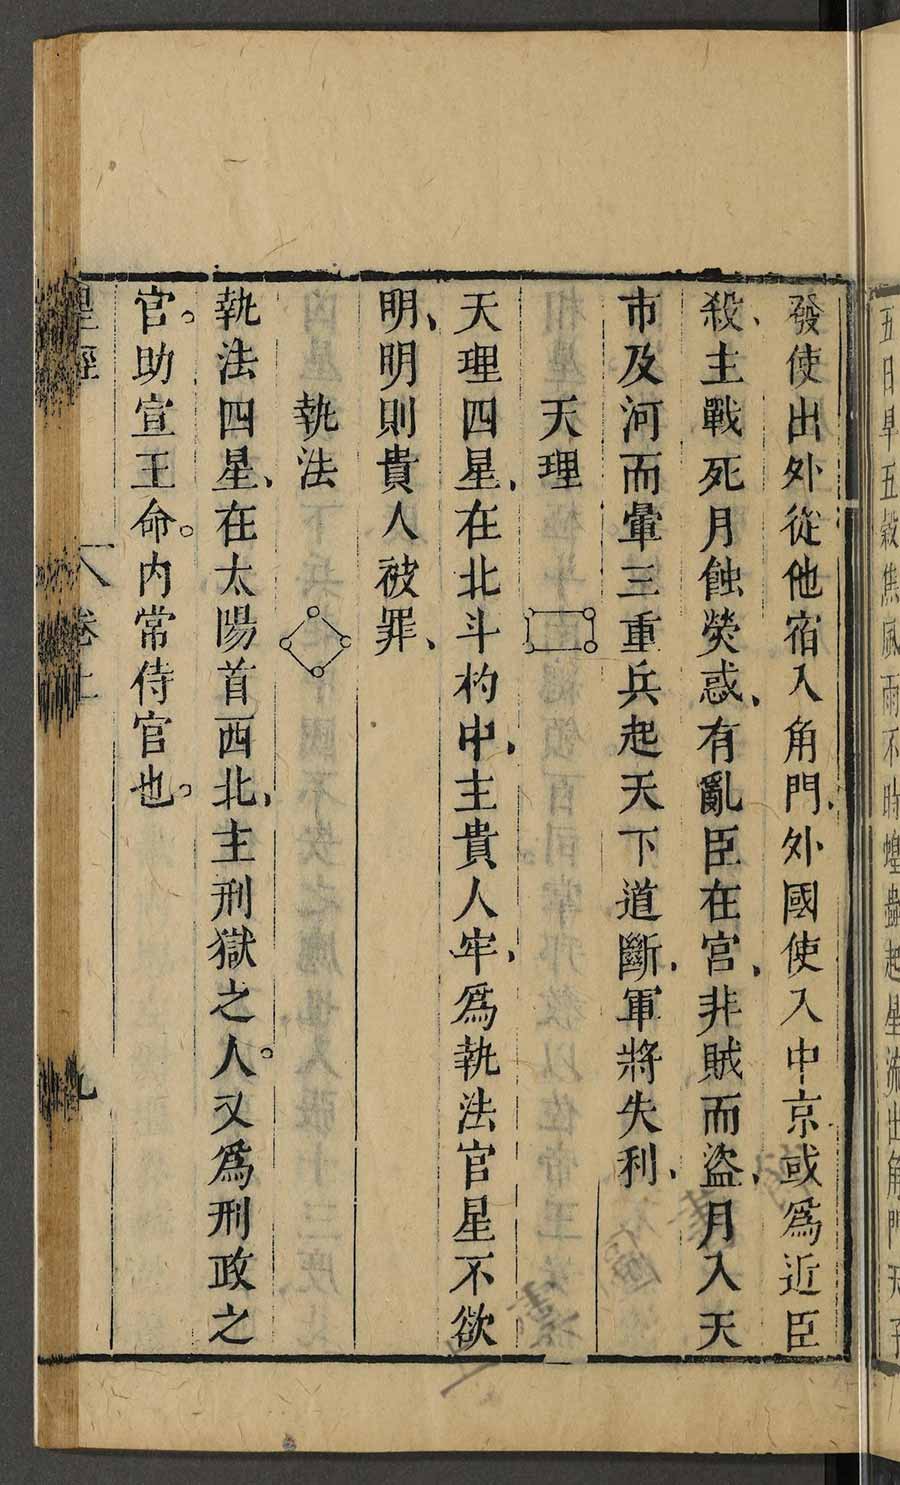 五日旱五穀焦風雨不時蝗蟲起星流出角門天子
發使出外從他宿入角門、外國使入中京或爲近臣
殺、主戰死月蝕熒惑、有亂臣在宮、非賊而盜、月入天
市及河而暈三重兵起天下道斷、軍將失利、
天理
天理四星、在北斗杓中、主貴人牢、爲執法官星不欲
明、明則貴人被罪、
執法
執法四星、在太陽首西北、主刑獄之人。又爲刑政之
官。助宣王命。内常侍官也。
星經 卷上 九